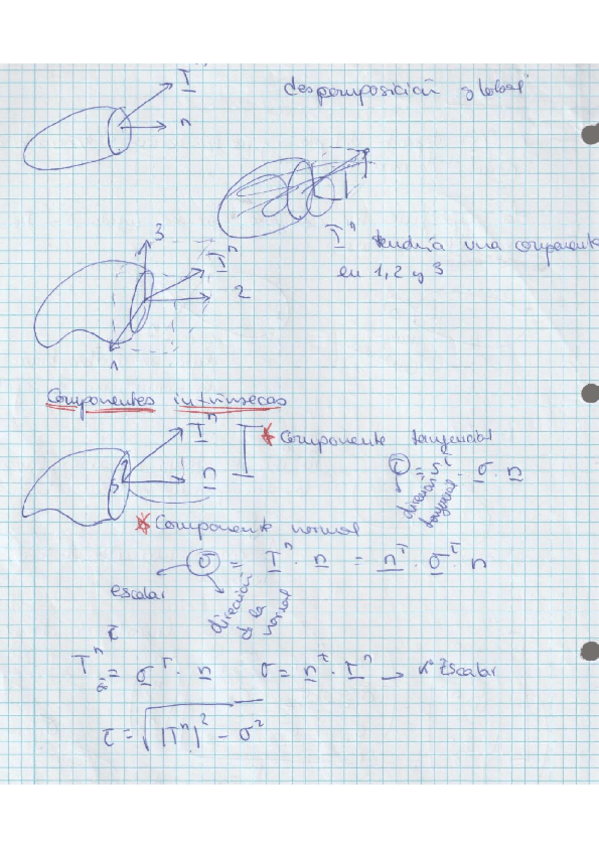 T n
descomposición global
3
T n
2
1
T n tendría una componente
en 1, 2 y 3
Componentes intrínsecas
T n
n
* Componente tangencial
τ = s T · σ · n
dirección tangencial
* Componente normal
σ = T n · n = n T · σ T · n
escalar
dirección de la normal
τ
T n = σ T · n σ = n T · T n → nº Escalar
τ = √|T n|² - σ²